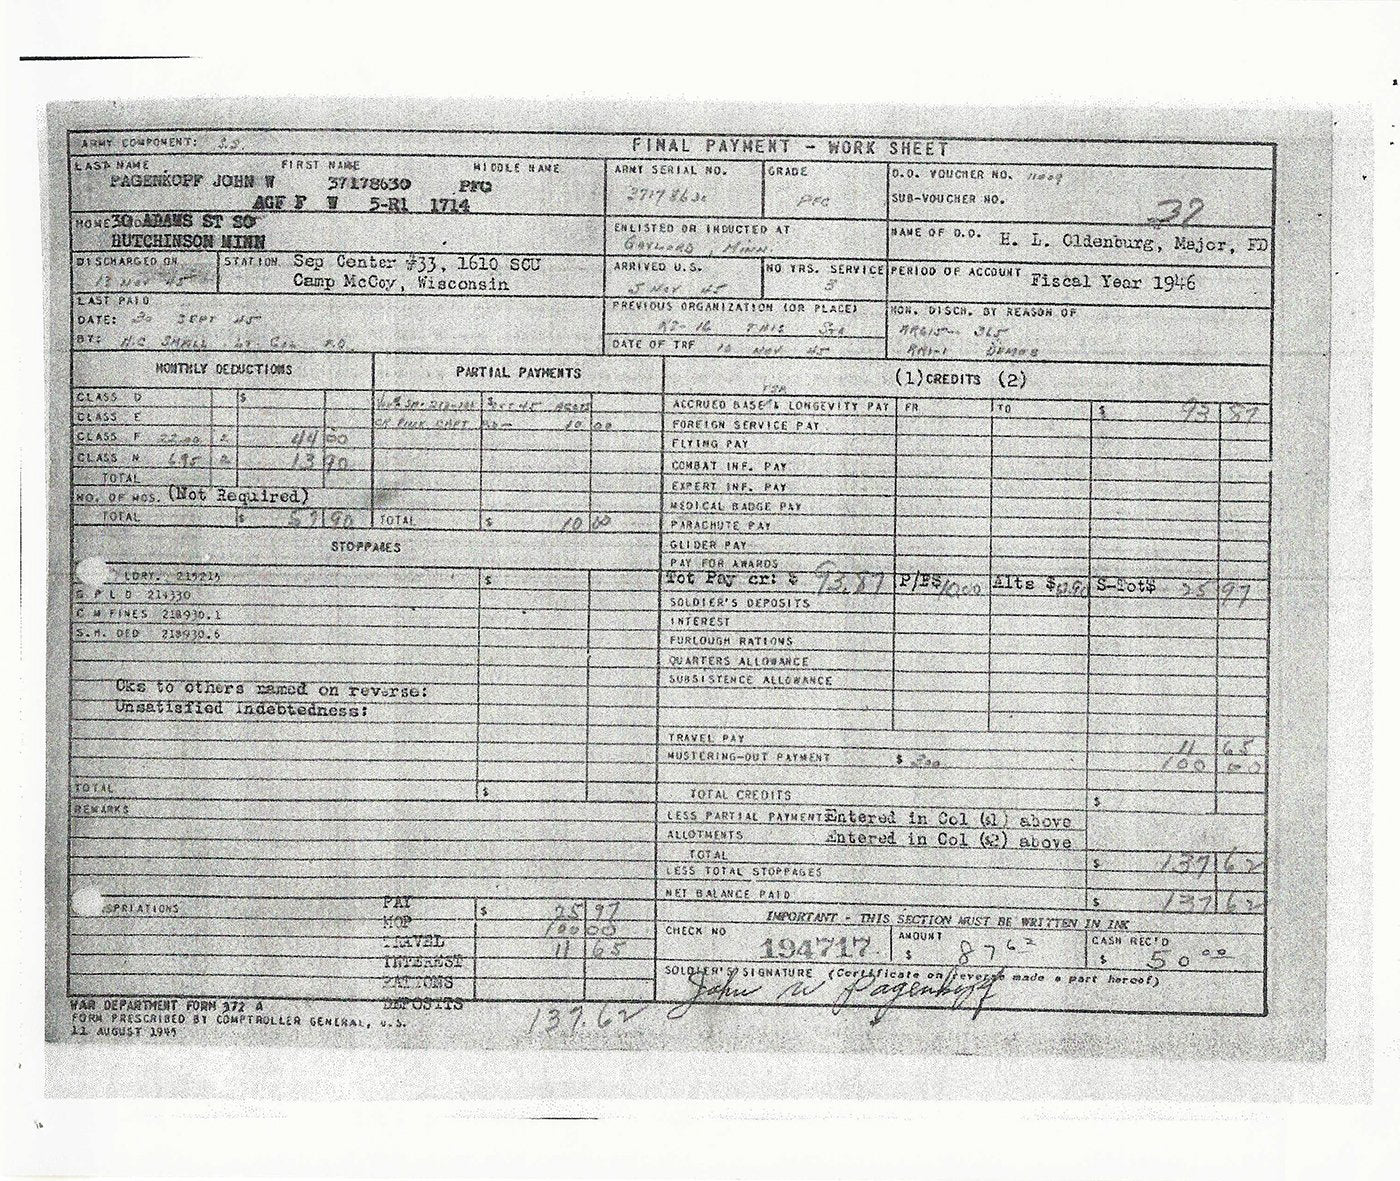 ARMY COMPONENT: S.S. FINAL PAYMENT - WORK SHEET
LAST NAME FIRST NAME MIDDLE NAME ARMY SERIAL NO. GRADE D.O. VOUCHER NO. 11009
PAGENKOPF JOHN W 37178630 PFC 37178630 PFC SUB-VOUCHER NO. 37
AGF F W 5-R1 1714
HOME 30 ADAMS ST SO ENLISTED OR INDUCTED AT NAME OF D.O. H. L. Oldenburg, Major, FD
HUTCHINSON MINN GAYLORD, MINN.
DISCHARGED ON STATION Sep Center #33, 1610 SCU ARRIVED U.S. NO YRS. SERVICE PERIOD OF ACCOUNT
13 NOV 45 Camp McCoy, Wisconsin 5 NOV 45 3 Fiscal Year 1946
LAST PAID PREVIOUS ORGANIZATION (OR PLACE) HON. DISCH. BY REASON OF
DATE: 30 SEPT 45 THIS 365
BY: H.C SMALL LT. COL F.D. DATE OF TRF 10 NOV 45 RR1-1 DEMOB
MONTHLY DEDUCTIONS PARTIAL PAYMENTS (1) CREDITS (2)
CLASS D $ ACCRUED BASE & LONGEVITY PAY FR TO $ 93 87
CLASS E 10 00 FOREIGN SERVICE PAY
CLASS F 22.00 2 44 00 FLYING PAY
CLASS N 6.95 2 13 90 COMBAT INF. PAY
TOTAL EXPERT INF. PAY
NO. OF MOS. (Not Required) MEDICAL BADGE PAY
TOTAL $ 57 90 TOTAL $ 10 00 PARACHUTE PAY
STOPPAGES GLIDER PAY
PAY FOR AWARDS
LDRY. 215215 $ Tot Pay cr: $ 93.87 P/P$ 10.00 Alts $ 57.90 S-Tot$ 25 97
G P L D 214330 SOLDIER'S DEPOSITS
C M FINES 218930.1 INTEREST
S.H. DED 218930.6 FURLOUGH RATIONS
QUARTERS ALLOWANCE
SUBSISTENCE ALLOWANCE
Cks to others named on reverse:
Unsatisfied Indebtedness:
TRAVEL PAY 11 65
MUSTERING-OUT PAYMENT $ 300 100 00
TOTAL $ TOTAL CREDITS $
REMARKS LESS PARTIAL PAYMENTS Entered in Col (1) above
ALLOTMENTS Entered in Col (2) above
TOTAL $ 137 62
LESS TOTAL STOPPAGES
NET BALANCE PAID $ 137 62
PAY $ 25 97 IMPORTANT - THIS SECTION MUST BE WRITTEN IN INK
MOP 100 00 CHECK NO 194717 AMOUNT $ 87 62 CASH REC'D $ 50 00
TRAVEL 11 65
INTEREST SOLDIER'S SIGNATURE (Certificate on reverse made a part hereof)
RATIONS John W Pagenkopf
DEPOSITS
WAR DEPARTMENT FORM 372 A 137.62
FORM PRESCRIBED BY COMPTROLLER GENERAL, U.S.
11 AUGUST 1945